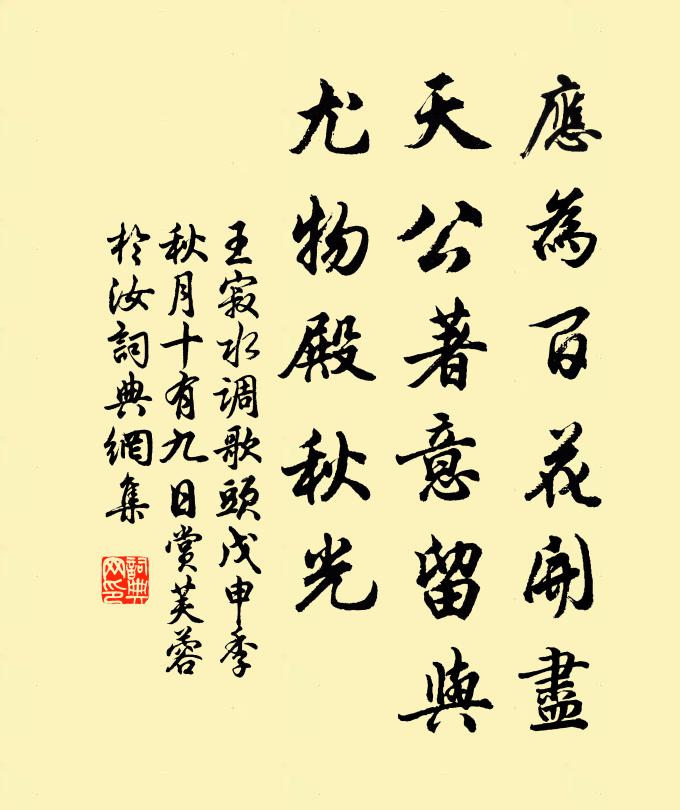 應為百花開盡
天公著意留與
尤物殿秋光
王寂水调歌頭戊申季
秋月十有九日賞芙蓉
於汝詞典網集
詞典
网印